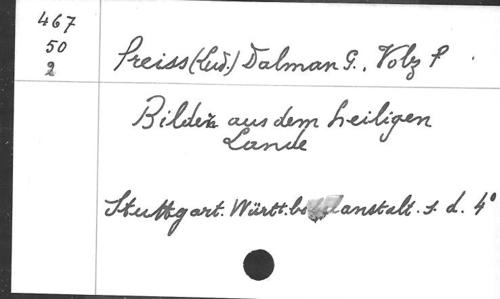 467
50
2
Preiss (Lud.) Dalman G., Volz P.
Bilder aus dem heiligen
Lande
Stuttgart. Württ. anstalt. s. d. 4°